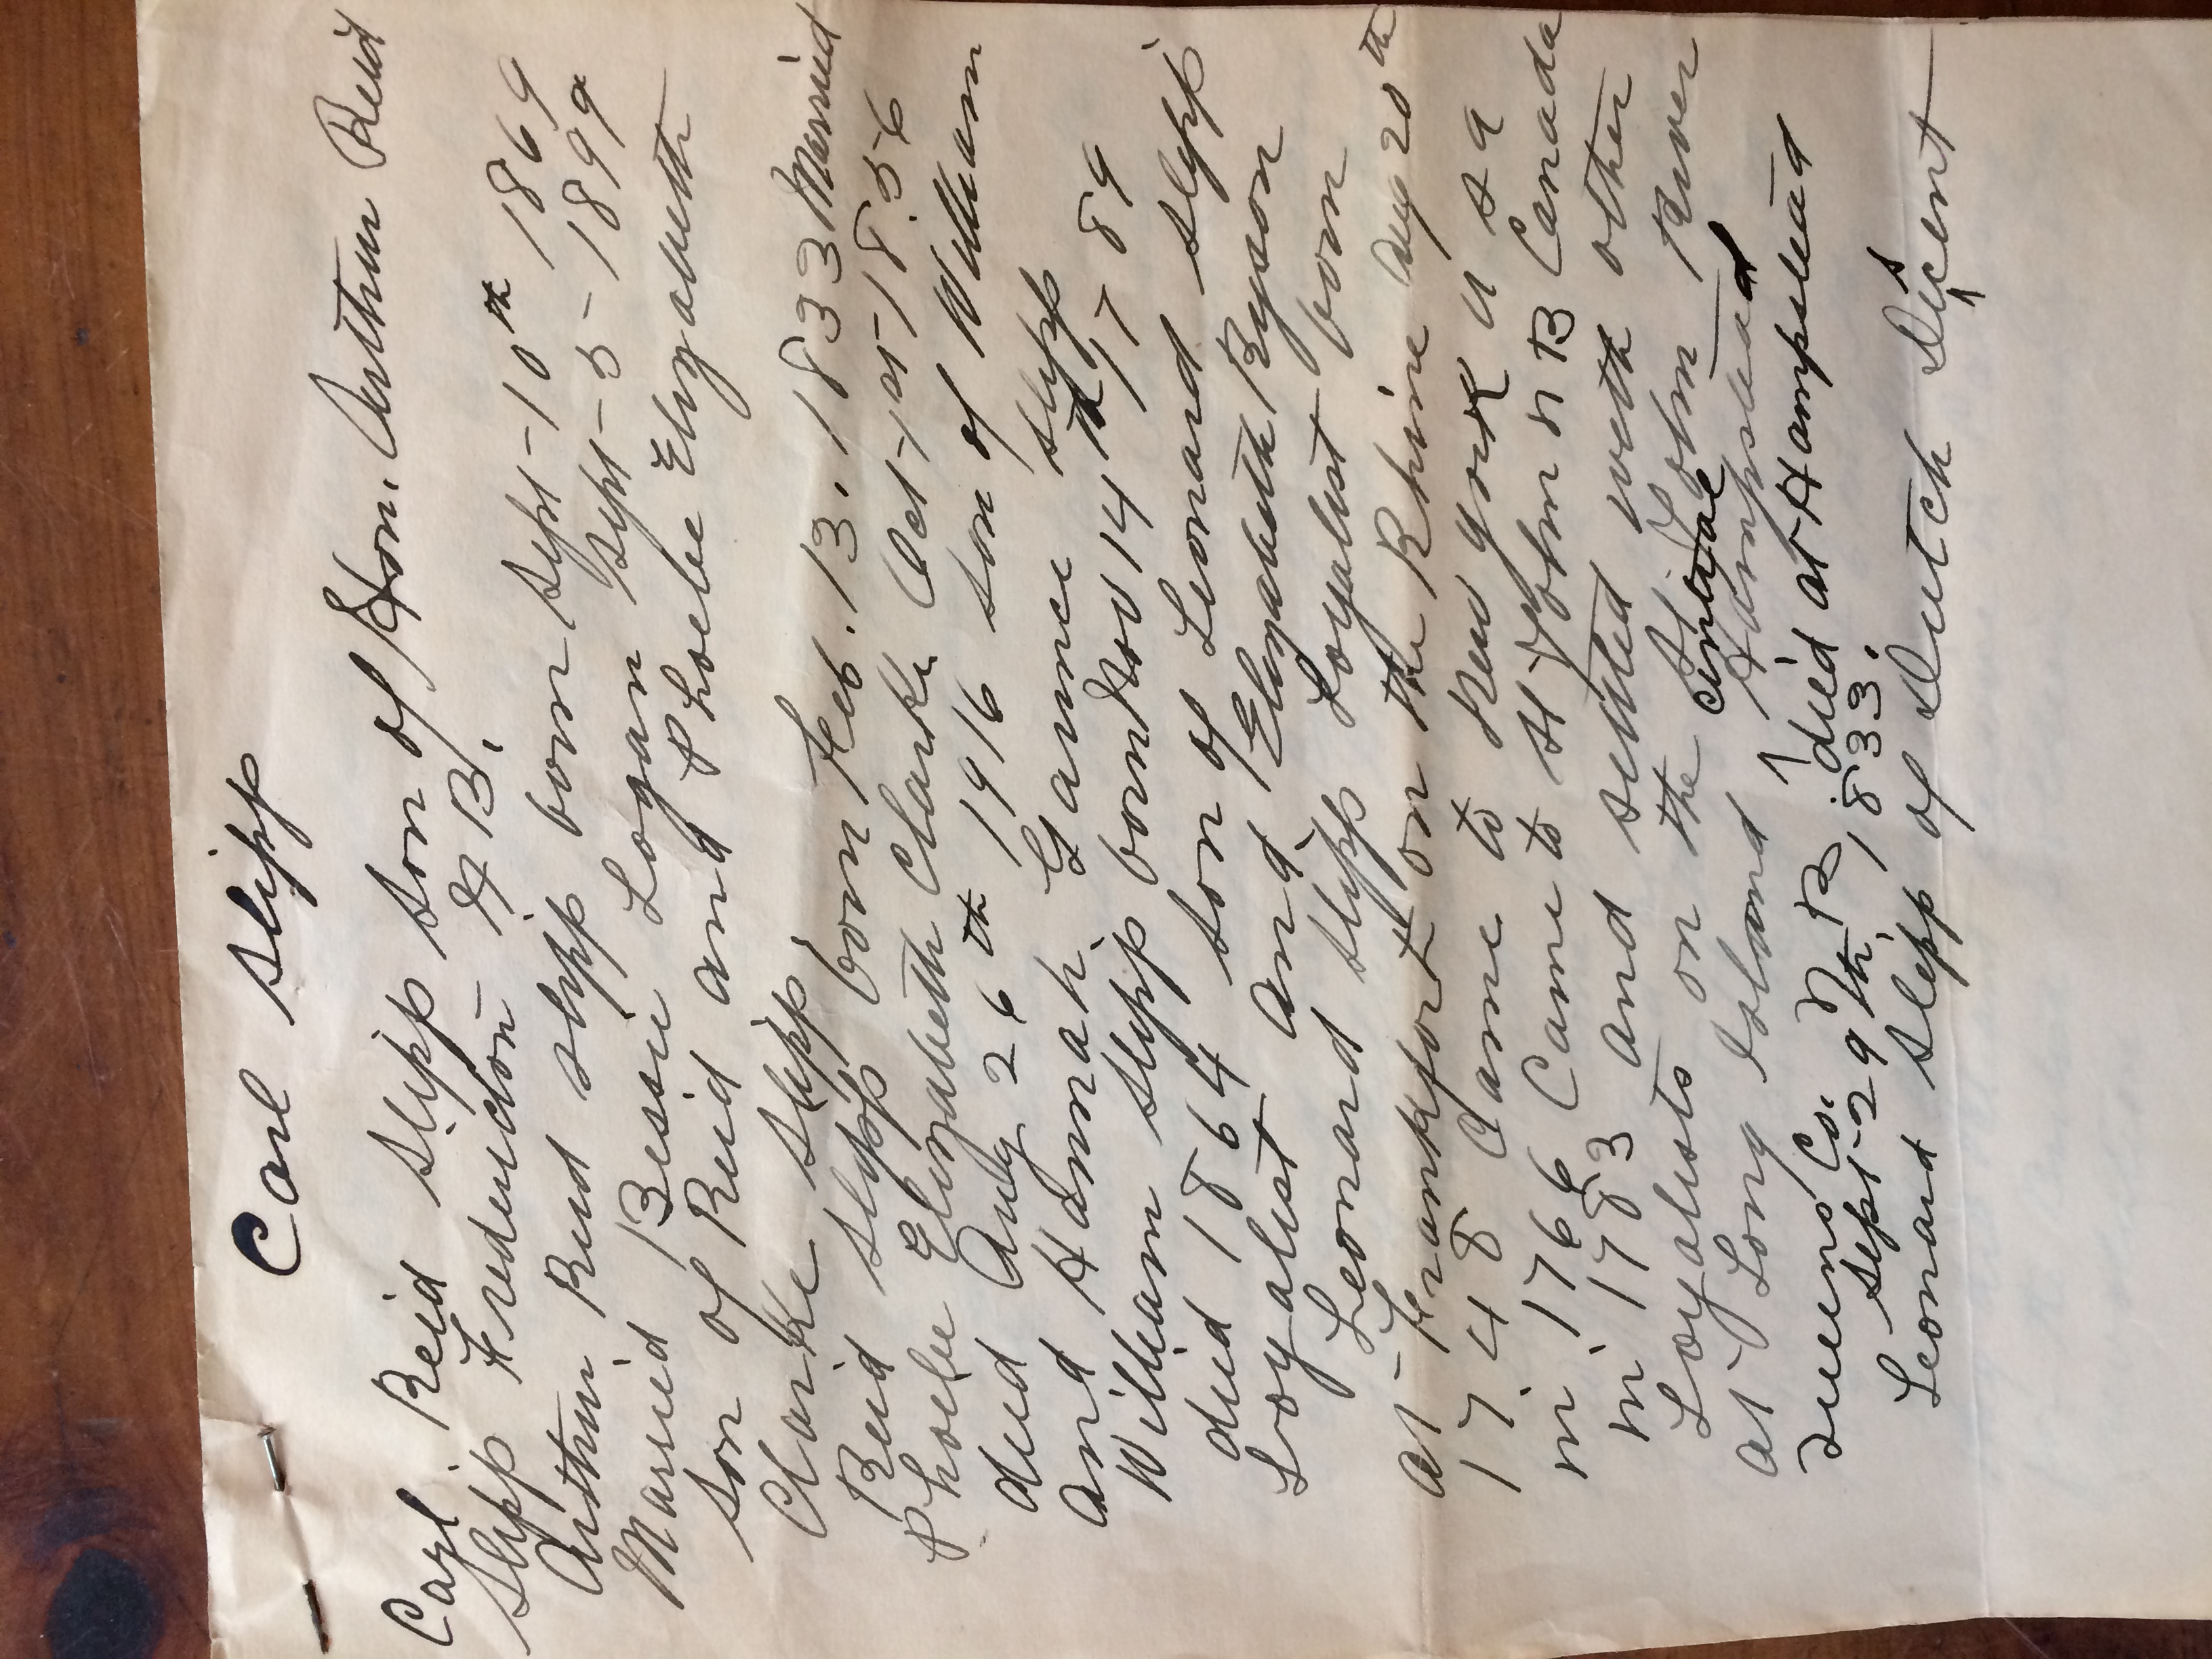 Carl Slipp
Carl Reid Slipp son of Hon. Arthur Reid
Slipp Fredericton N B.
Arthur Reid Slipp born Sept-10th 1869
Married Bessie Logan Sept-5-1899
son of Reid and Phoebe Elizabeth
Clarke Slipp
Reid Slipp born Feb. 13. 1833 Married
Phoebe Elizabeth Clarke Oct-1st-1856
died Aug 26th 1916 son of William
and Hannah Gaunce Slipp
William Slipp born Nov 14th 1789
died 1864 son of Leonard Slipp
Loyalist and Elizabeth Ryson
Leonard Slipp Loyalist born
at-Frankfort on the Rhine Aug 20th
1748 Came to New York U S A
in 1766 Came to St John N B Canada
in 1783 and settled with other
Loyalists on the St John River
at Long Island Hampstead
Queens Co. N. B. died at Hampstead
Sept-29th, 1833.
Leonard Slipp of Dutch Descent